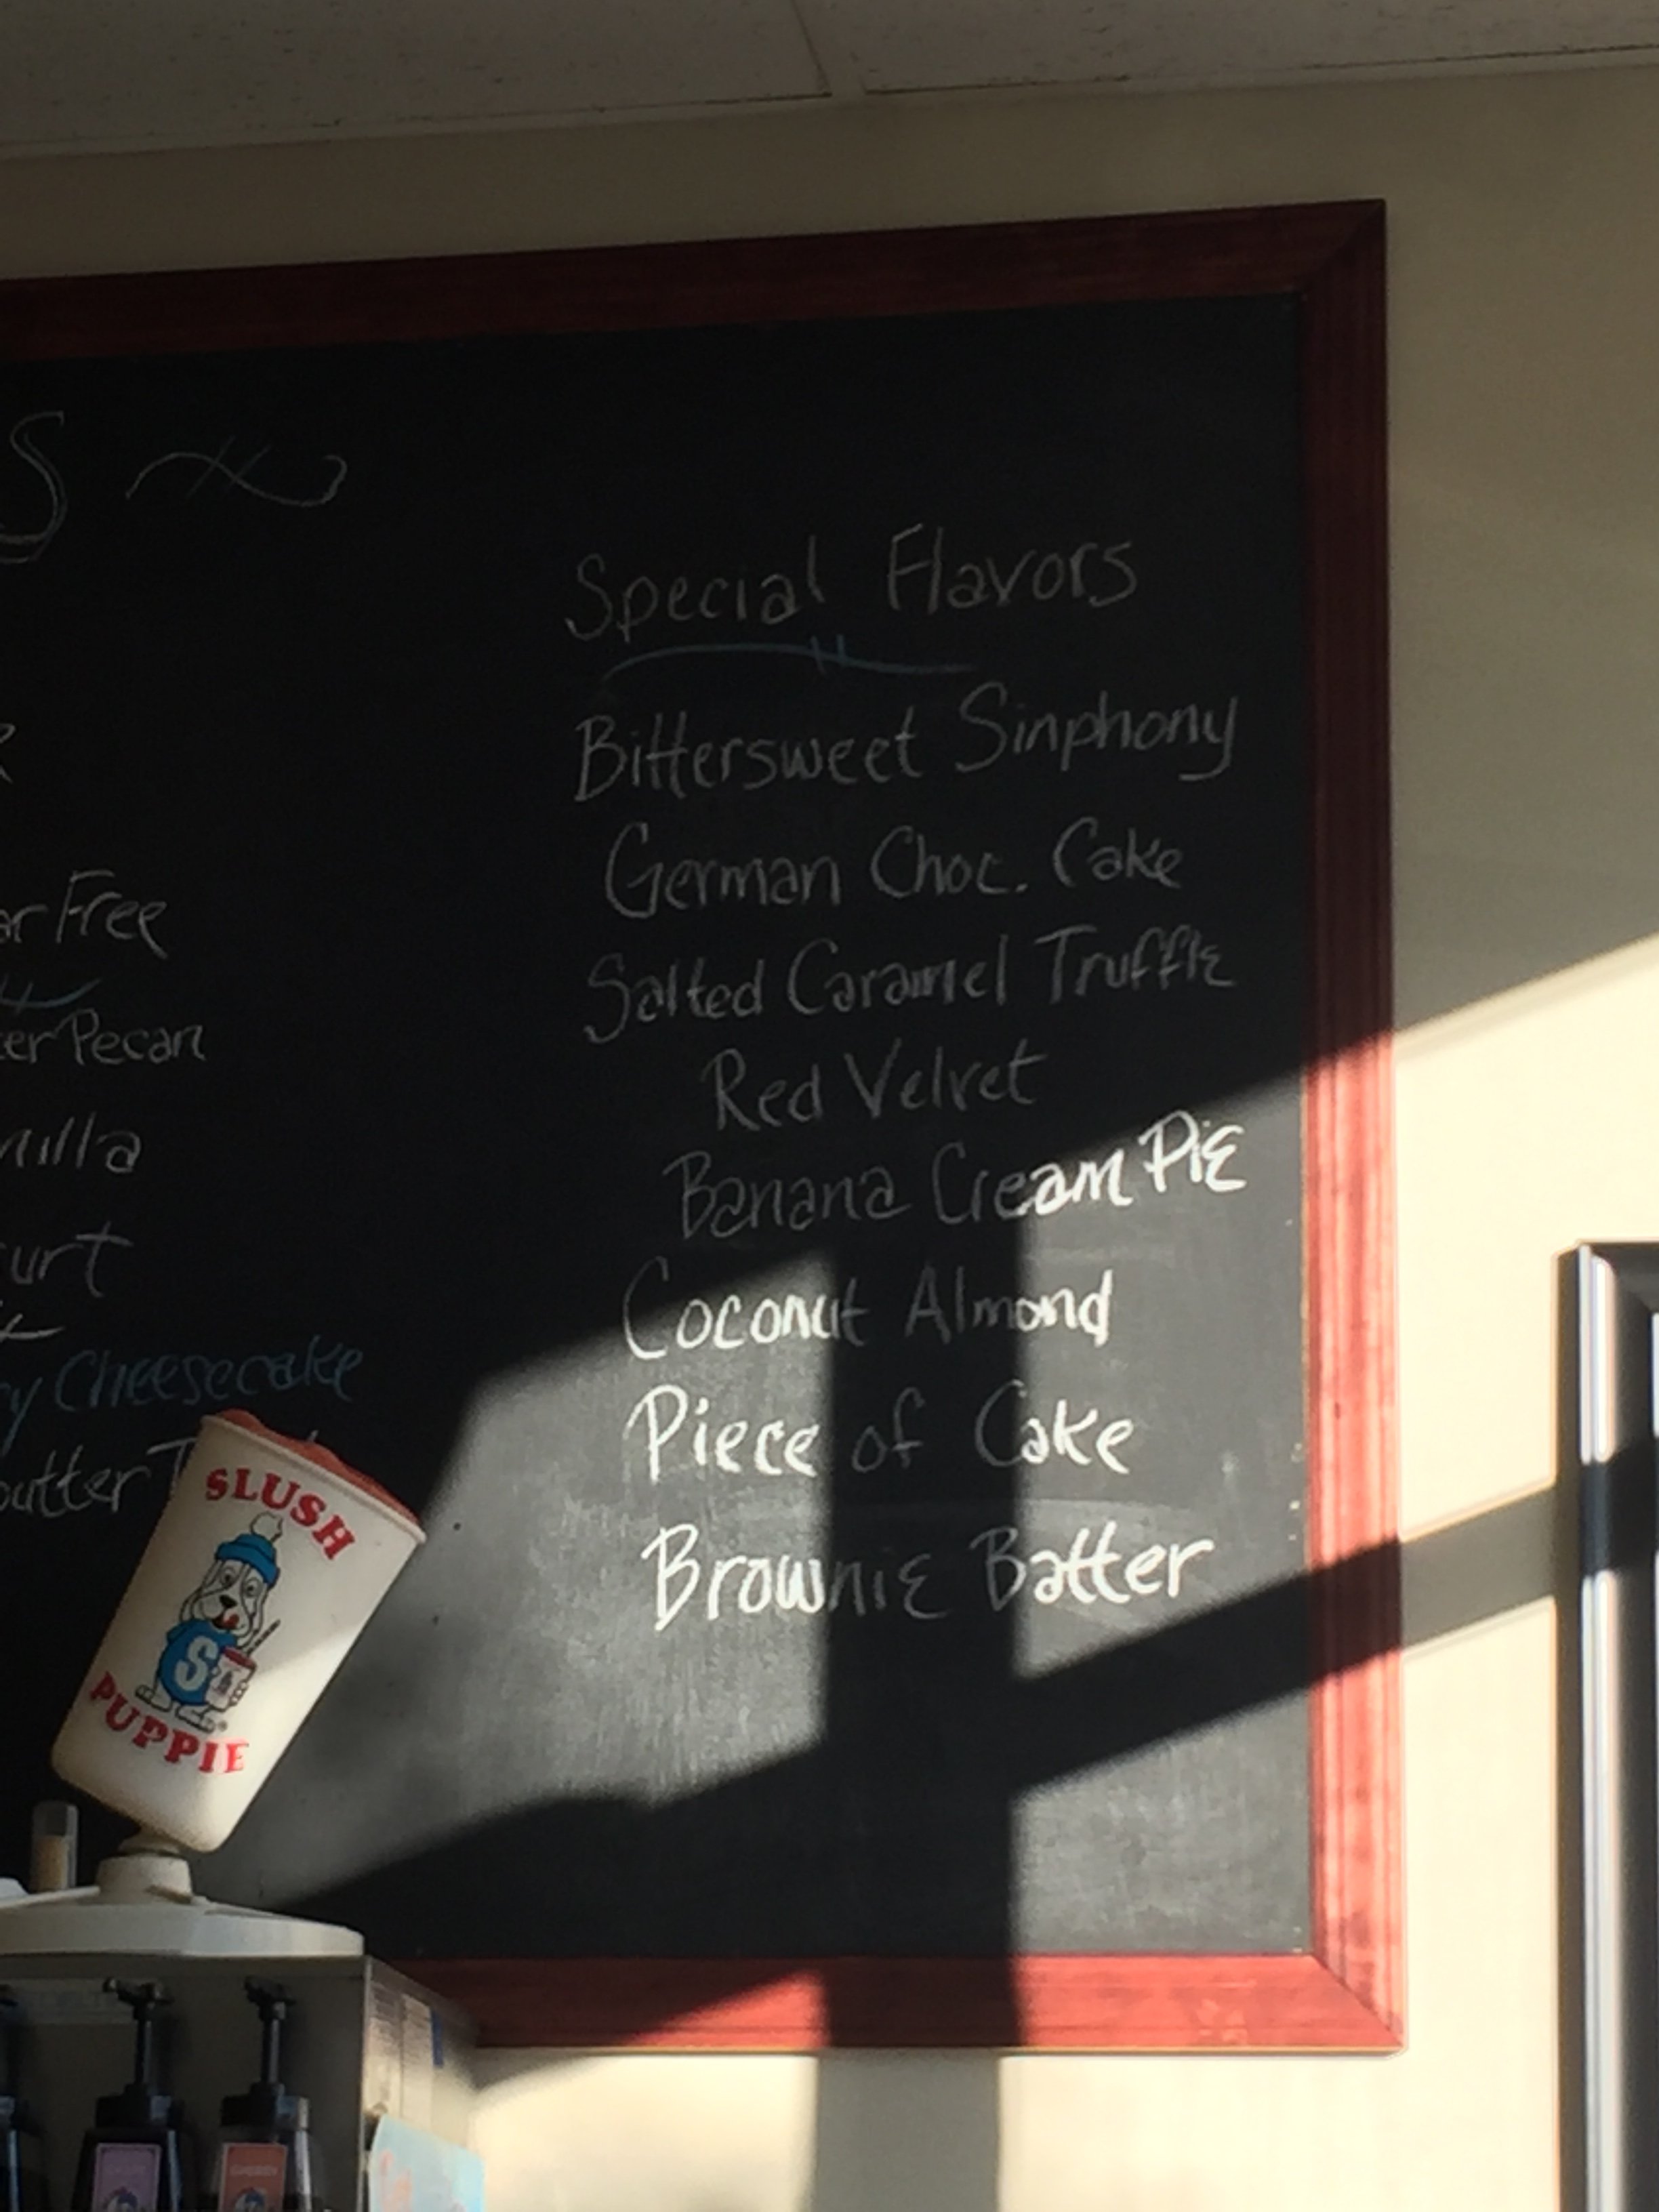 S
R
Free
Pecan
Cheesecake
Special Flavors
Bittersweet Sinphony
German Choc. Cake
Salted Caramel Truffle
Red Velvet
Banana Cream Pie
Coconut Almond
Piece of Cake
Brownie Batter
SLUSH
S
PUPPIE